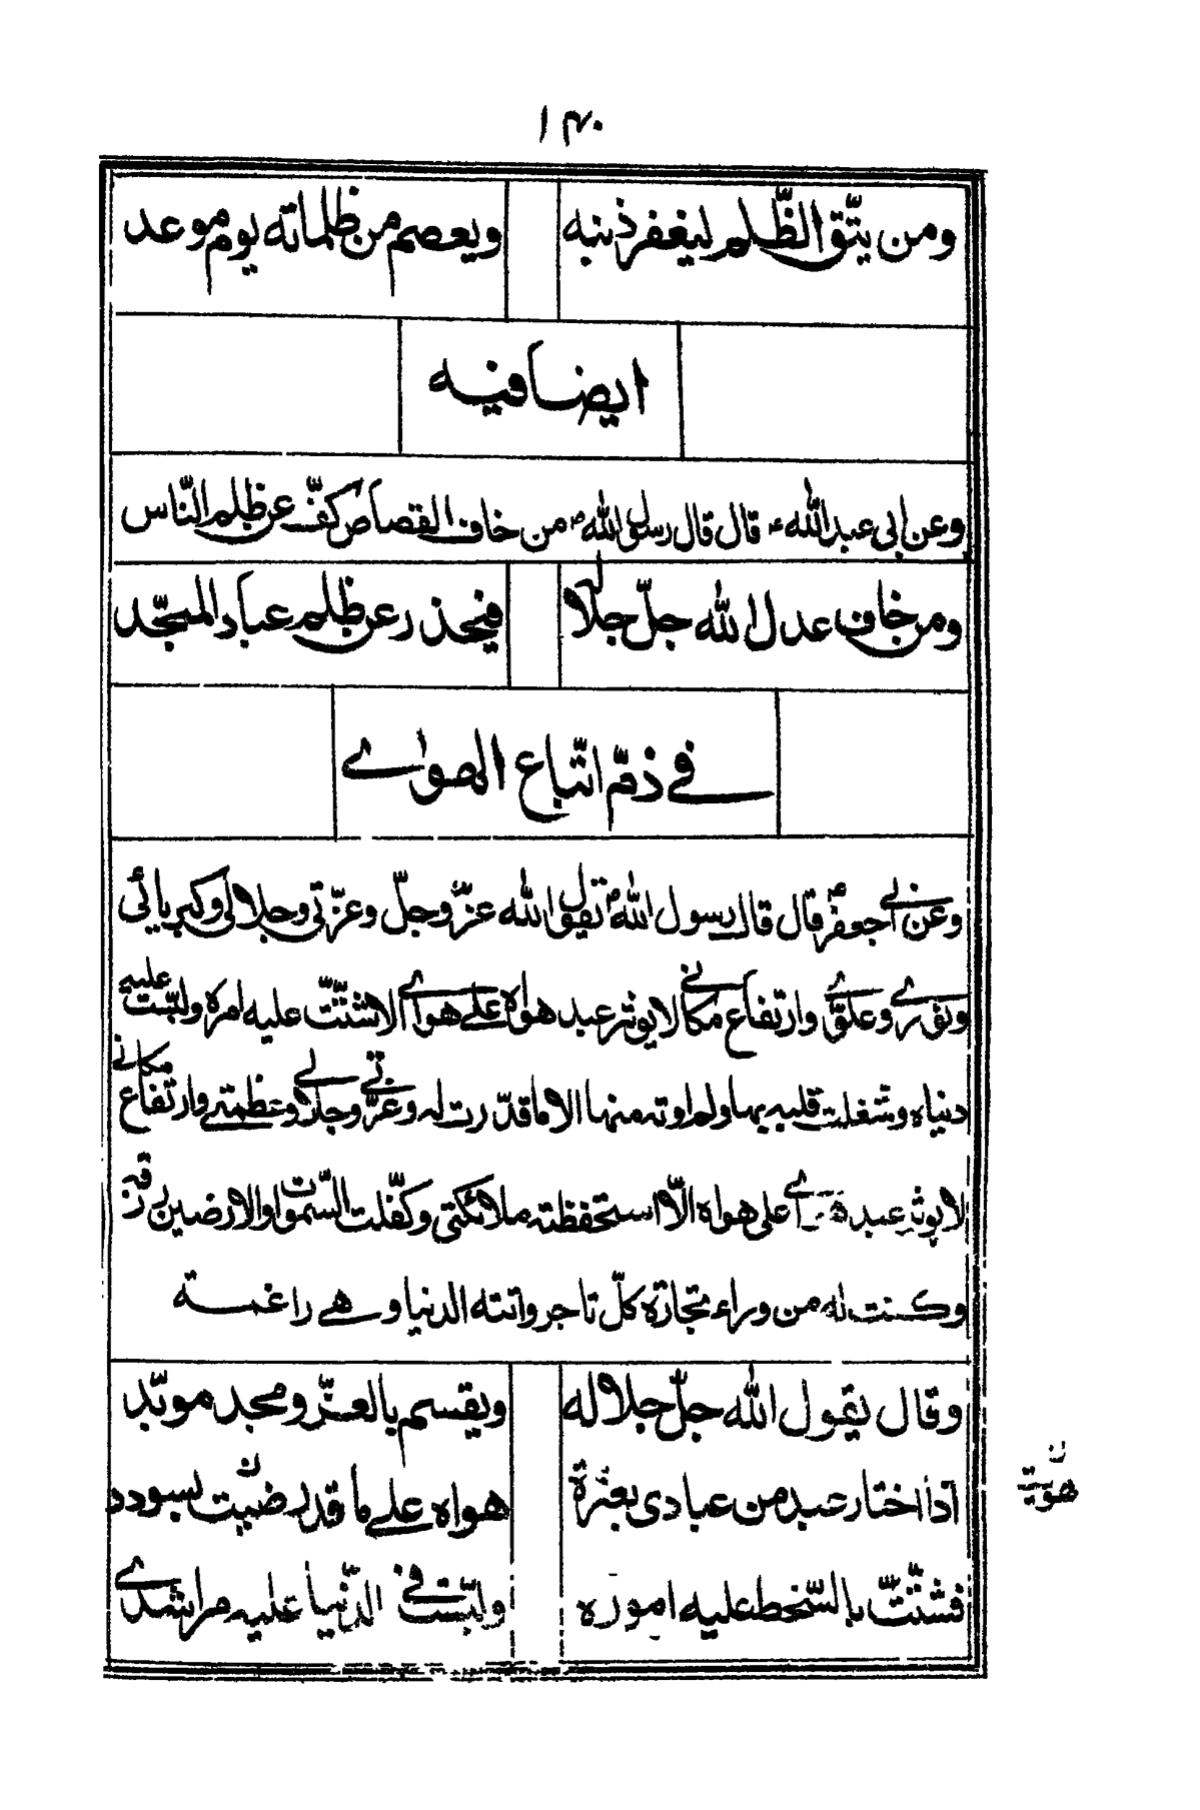 ١٣٠
ومن يتّق الظّلم ليغفر ذنبه ويعصم من ظلماته يوم موعد
ايضا فيه
وعن ابي عبد الله ع قال قال رسول الله ص من خاف القصاص كفّ عن ظلم النّاس
ومن خاف عدل الله جلّ جلاله فيحذر عن ظلم عباد الممجّد
في ذمّ اتّباع الهواے
وعن ابي جعفر ع قال قال رسول الله ص يقول الله عزّ وجلّ وعزّتي وجلالي وكبريائي
ونورے وعلوّے وارتفاع مكاني لا يوثر عبد هواه علے هواے الا شتّتّ عليه امره ولبّست عليه
دنياه وشغلت قلبه بها ولم اوته منها الا ما قدّرت له وعزّتي وجلالے وعظمتے وارتفاع مكاني
لا يوثر عبد هواے على هواه الّا استحفظته ملائكتي وكفّلت السّموات والارضين رزقه
وكنت له من وراء تجارة كلّ تاجر واتته الدنيا وهے راغمة
وقال يقول الله جلّ جلاله ويقسم بالعزّ ومجد موبّد
اذا اختار عبد من عبادى بعزّة هواه علے ما قد رضيت بسودد
ن هويته
فشتّتّ بالسّخط عليه اموره ولبّست في الدّنيا عليه مراشدے